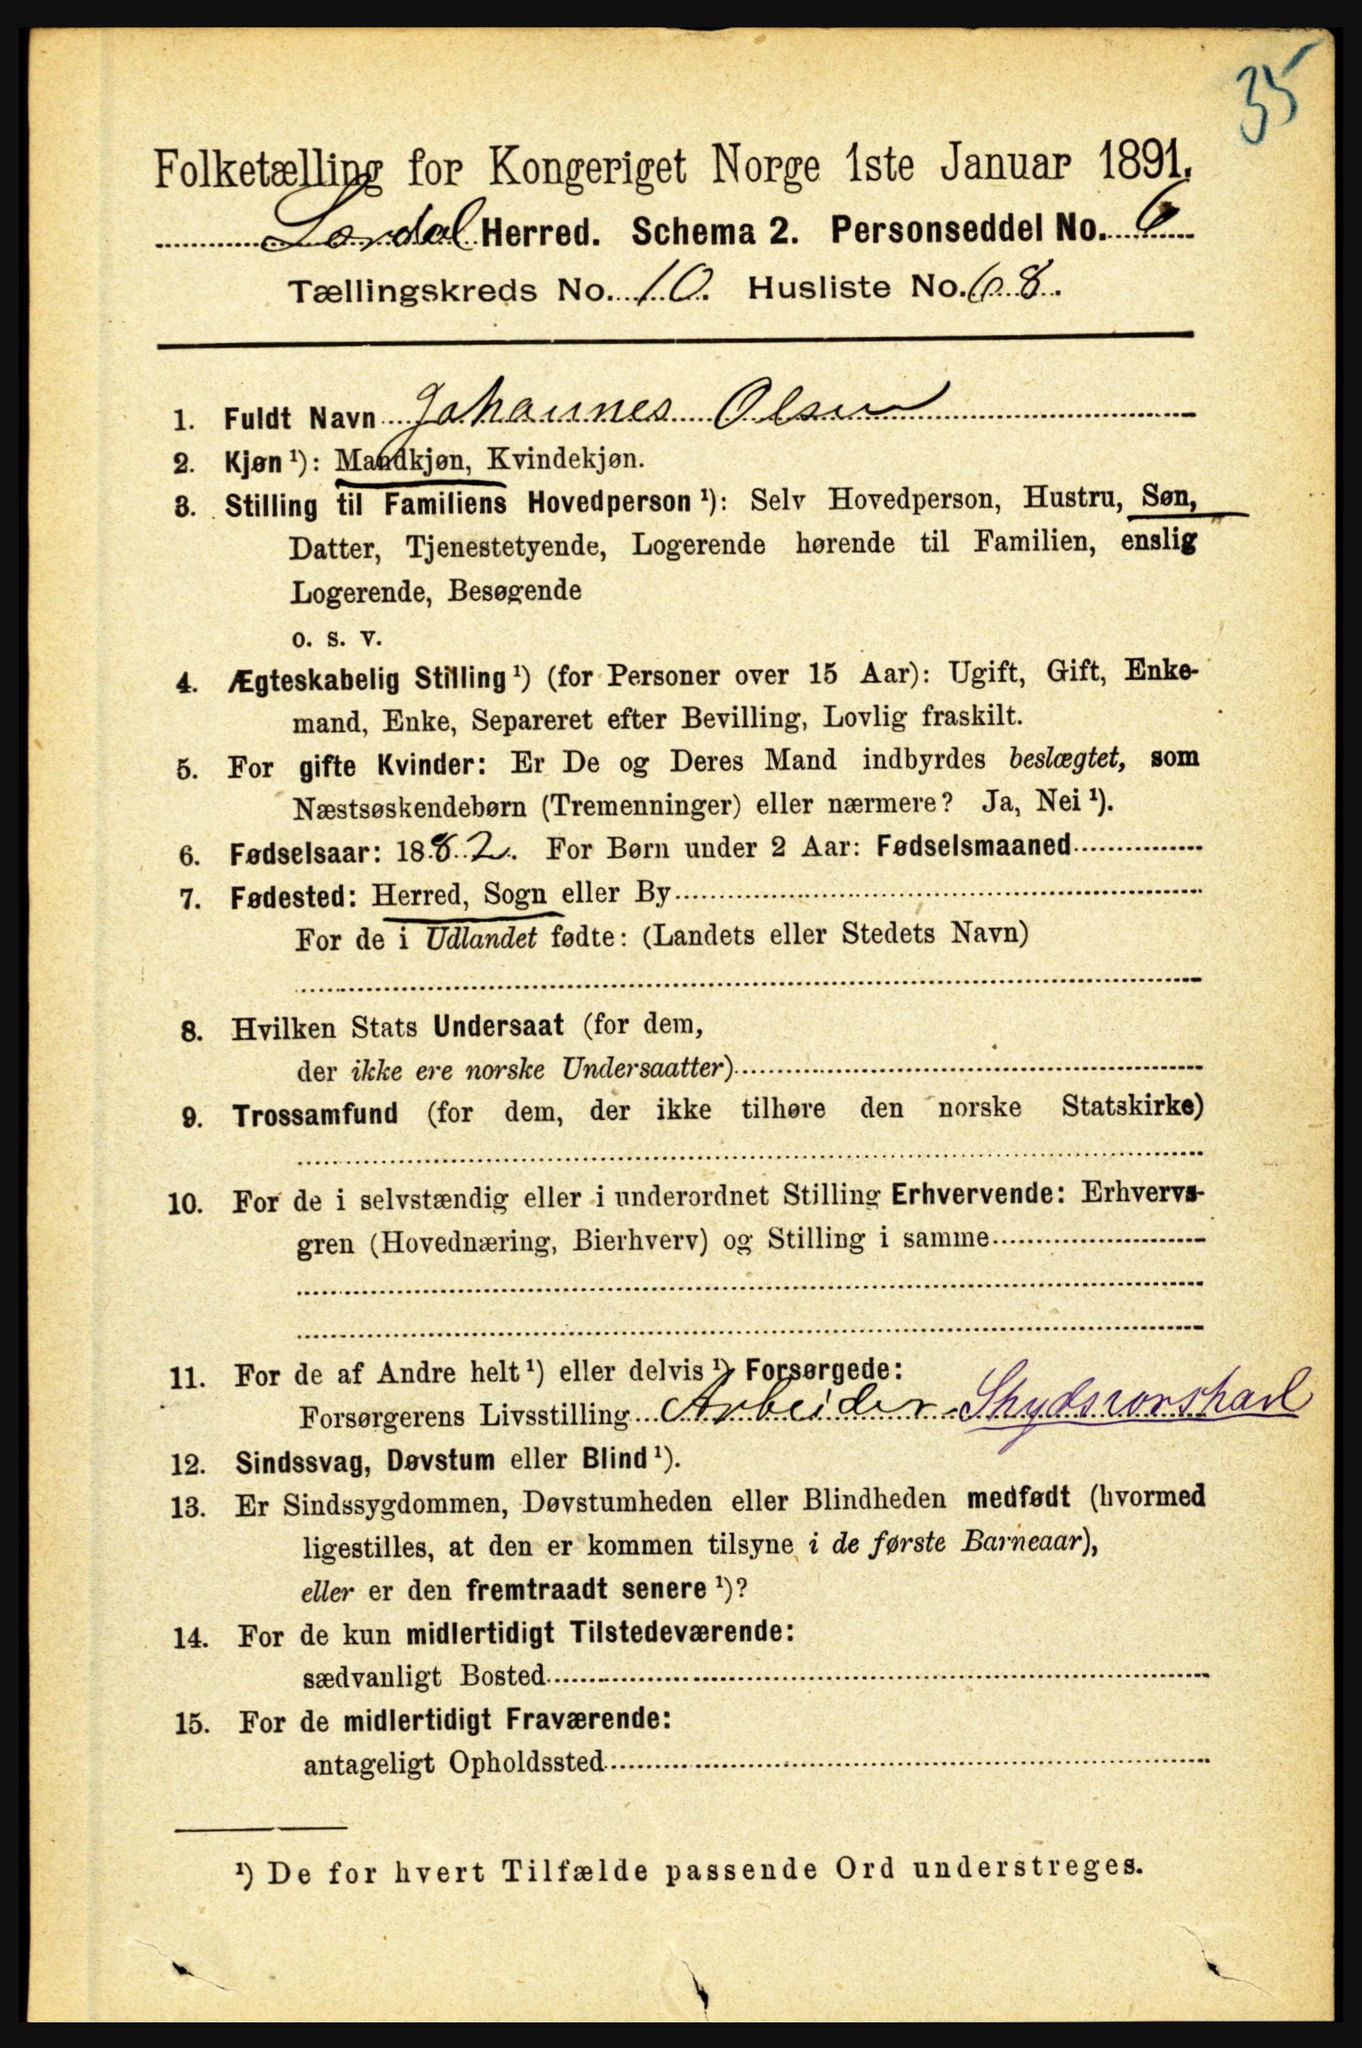 35
Folketælling for Kongeriget Norge 1ste Januar 1891.
Lærdal Herred. Schema 2. Personseddel No. 6
Tællingskreds No. 10. Husliste No. 68.
1. Fuldt Navn Johannes Olsen
2. Kjøn ¹): Mandkjøn, Kvindekjøn.
3. Stilling til Familiens Hovedperson ¹): Selv Hovedperson, Hustru, Søn,
Datter, Tjenestetyende, Logerende hørende til Familien, enslig
Logerende, Besøgende
o. s. v.
4. Ægteskabelig Stilling ¹) (for Personer over 15 Aar): Ugift, Gift, Enke-
mand, Enke, Separeret efter Bevilling, Lovlig fraskilt.
5. For gifte Kvinder: Er De og Deres Mand indbyrdes beslægtet, som
Næstsøskendebørn (Tremenninger) eller nærmere? Ja, Nei ¹).
6. Fødselsaar: 1882. For Børn under 2 Aar: Fødselsmaaned
7. Fødested: Herred, Sogn eller By
For de i Udlandet fødte: (Landets eller Stedets Navn)
8. Hvilken Stats Undersaat (for dem,
der ikke ere norske Undersaatter)
9. Trossamfund (for dem, der ikke tilhøre den norske Statskirke)
10. For de i selvstændig eller i underordnet Stilling Erhvervende: Erhvervs-
gren (Hovednæring, Bierhverv) og Stilling i samme
11. For de af Andre helt ¹) eller delvis ¹) Forsørgede:
Forsørgerens Livsstilling Arbeider
12. Sindssvag, Døvstum eller Blind ¹).
13. Er Sindssygdommen, Døvstumheden eller Blindheden medfødt (hvormed
ligestilles, at den er kommen tilsyne i de første Barneaar),
eller er den fremtraadt senere ¹)?
14. For de kun midlertidigt Tilstedeværende:
sædvanligt Bosted
15. For de midlertidigt Fraværende:
antageligt Opholdssted
¹) De for hvert Tilfælde passende Ord understreges.